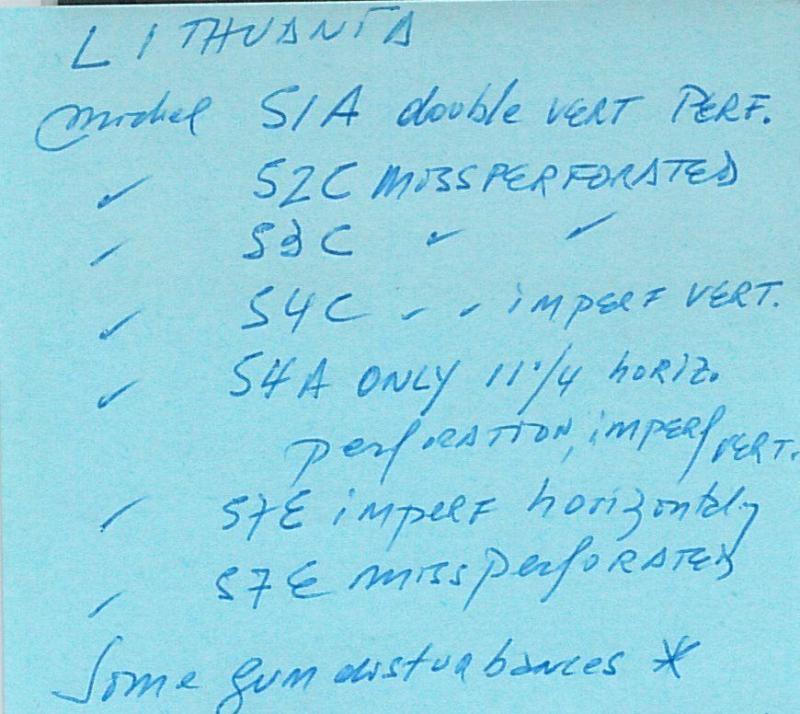 LITHUANIA
Michel 51A double VERT PERF.
✓ 52C MISSPERFORATED
✓ 53C ✓ ✓
✓ 54C ✓ ✓ imperf VERT.
✓ 54A ONLY 11 1/4 horiz.
perforATION, imperf VERT.
✓ 57E imperf horizontaly
✓ 57E missperforated
Some gum disturbances *